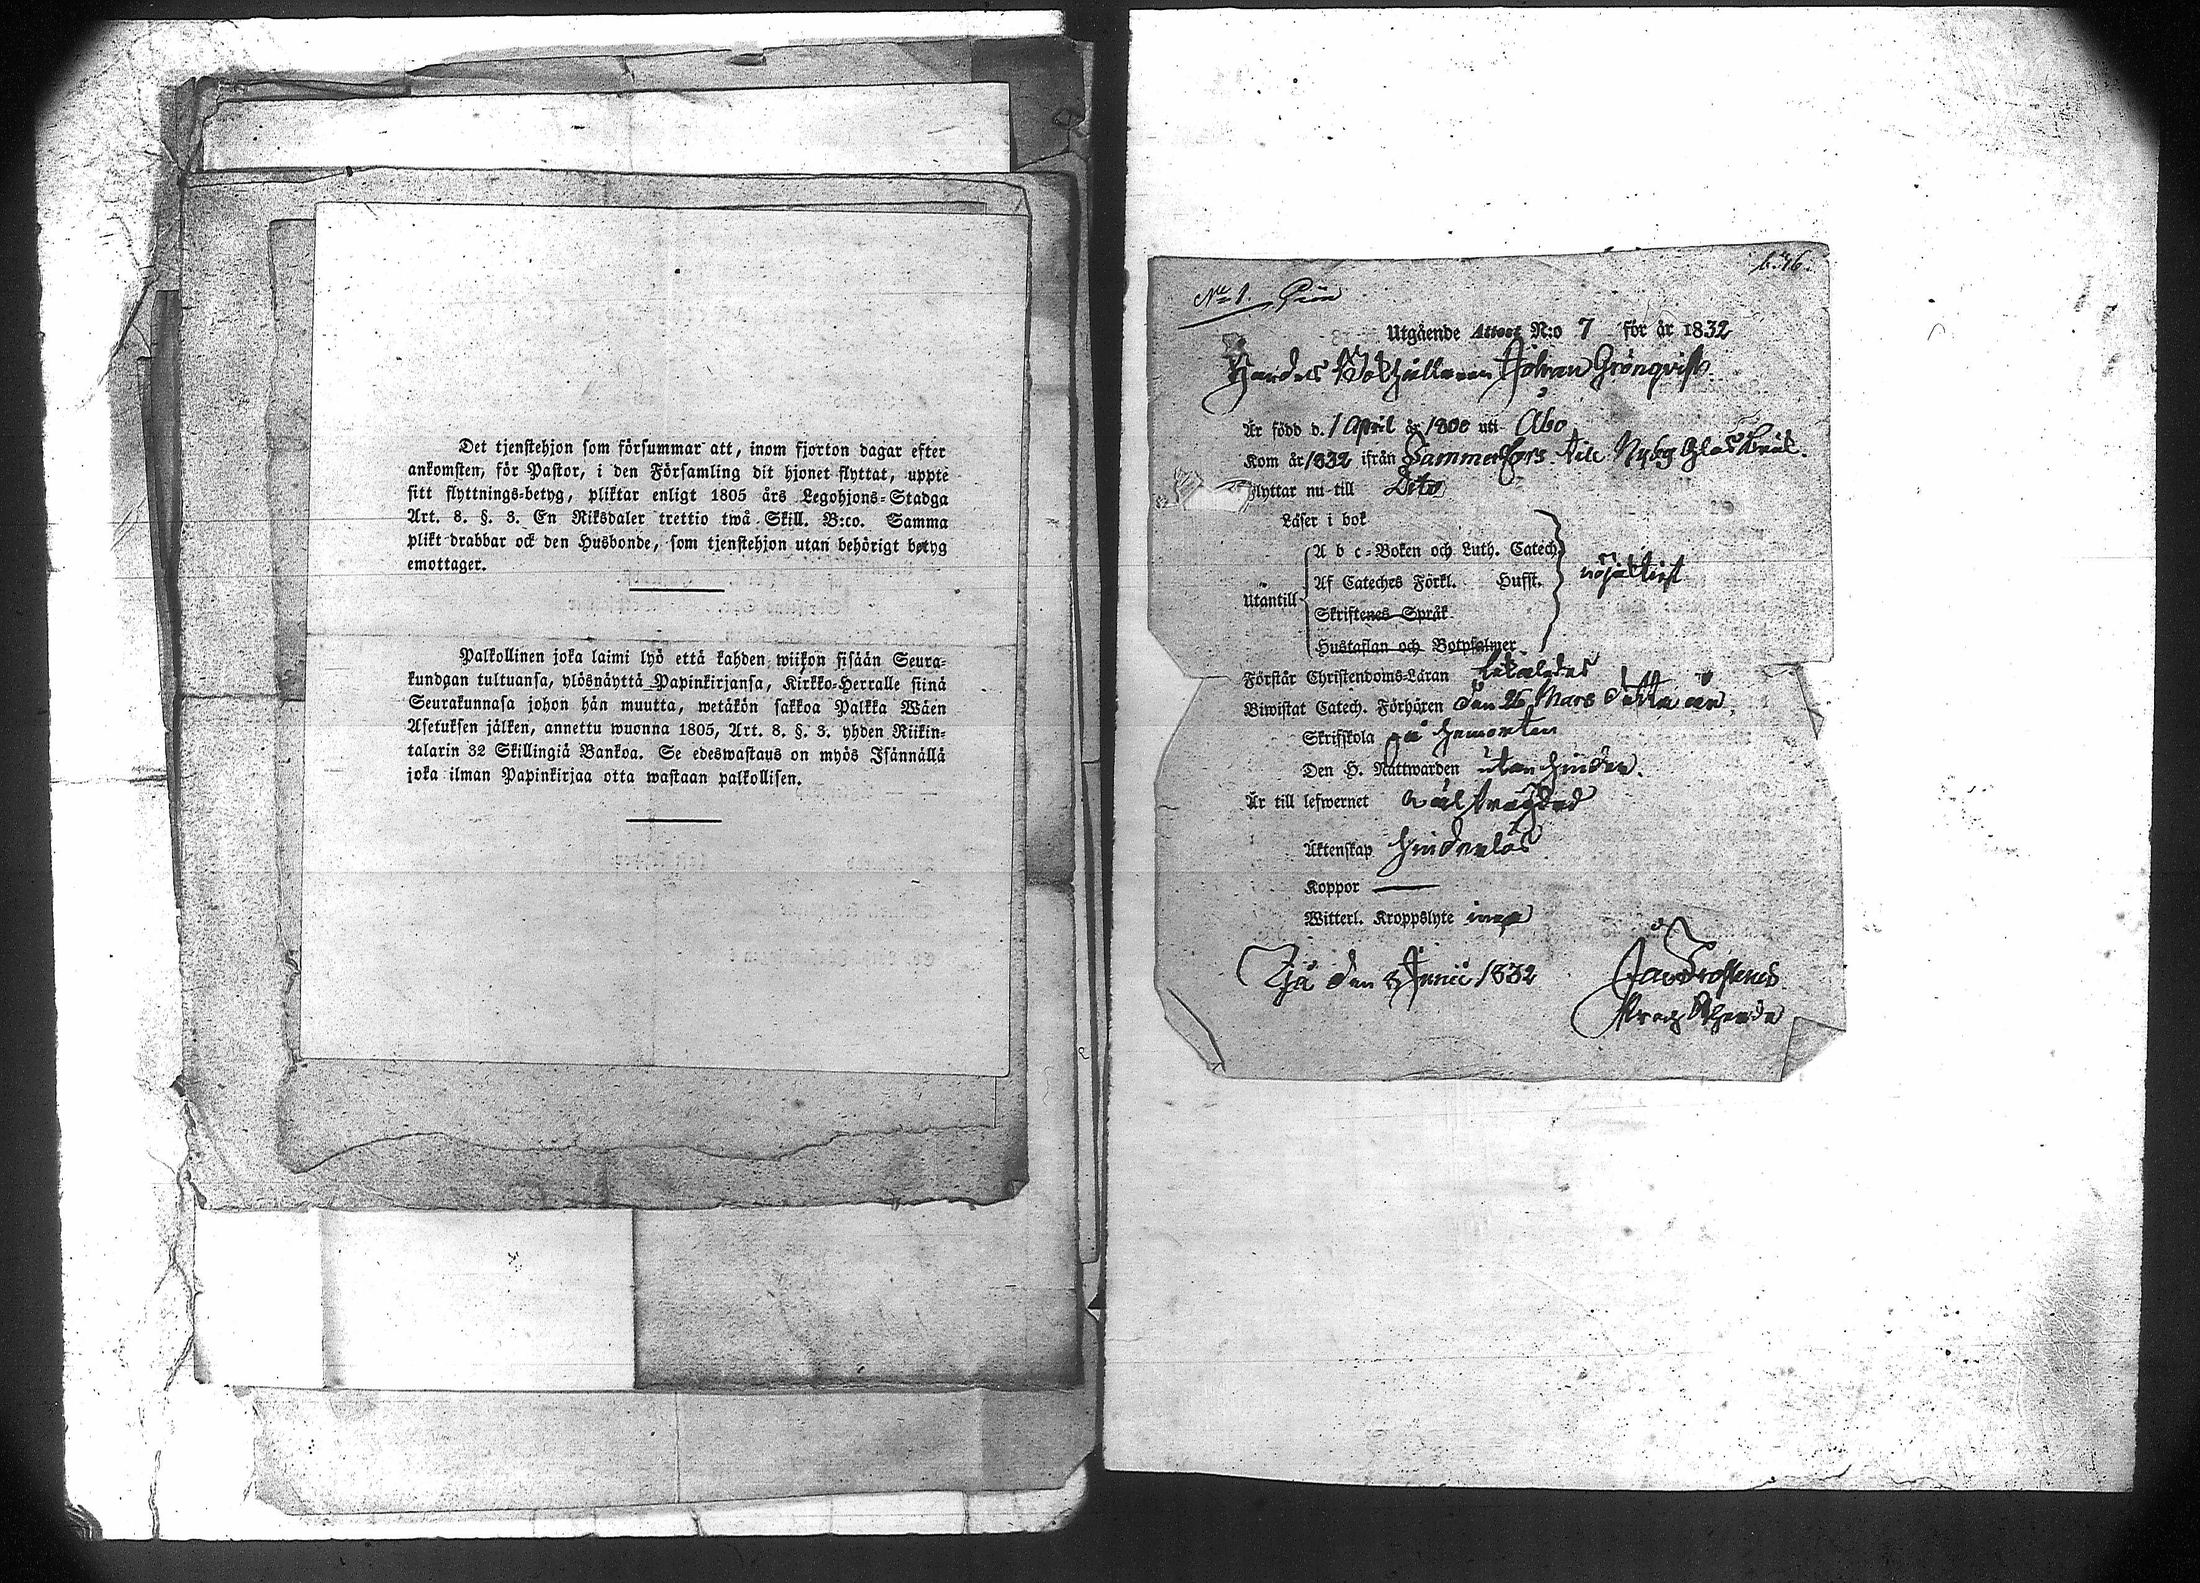 Det tjenstehjon som försummar att, inom fjorton dagar efter
ankomsten, för Pastor, i den Församling dit hjonet flyttat, uppte
sitt flyttnings-betyg, pliktar enligt 1805 års Legohjons-Stadga
Art. 8. §. 3. En Riksdaler trettio twå Skill. B:co. Samma
plikt drabbar ock den Husbonde, som tjenstehjon utan behörigt betyg
emottager.
Palkollinen joka laimi lyö että kahden wiikon sisään Seura-
kundaan tultuansa, ylösnäyttä Papinkirjansa, Kirkko-Herralle siinä
Seurakunnasa johon hän muutta, wetäkön sakkoa Palkka Wäen
Asetuksen jälken, annettu wuonna 1805, Art. 8. §. 3. yhden Riikin-
talarin 32 Skillingiä Bankoa. Se edeswastaus on myös Isännällä
joka ilman Papinkirjaa otta wastaan palkollisen.
b. 46.
No 1.
Utgående Attest N:o 7 för år 1832
Handels Bokhållaren Johan Grönqvist
Är född d. 1 April år 1800 uti Åbo
Kom år 1832 ifrån Tammerfors till Nyby Glasbruk.
Flyttar nu till Dito
Läser i bok
A b c-Boken och Luth. Catech.
Af Cateches Förkl. Hufst. nöjaktigt
Utantill
Skriftenes Språk
Hustaflan och Botpsalmer
Förstår Christendoms-Läran
Biwistat Catech. Förhören den 26 Mars detta år
Skriftskola på hemorten
Den H. Nattwarden utan hinder.
Är till lefwernet wälfrägdad
Äktenskap hinderlös
Koppor —
Witterl. Kroppslyte inga
Ijå den 3 Junii 1832